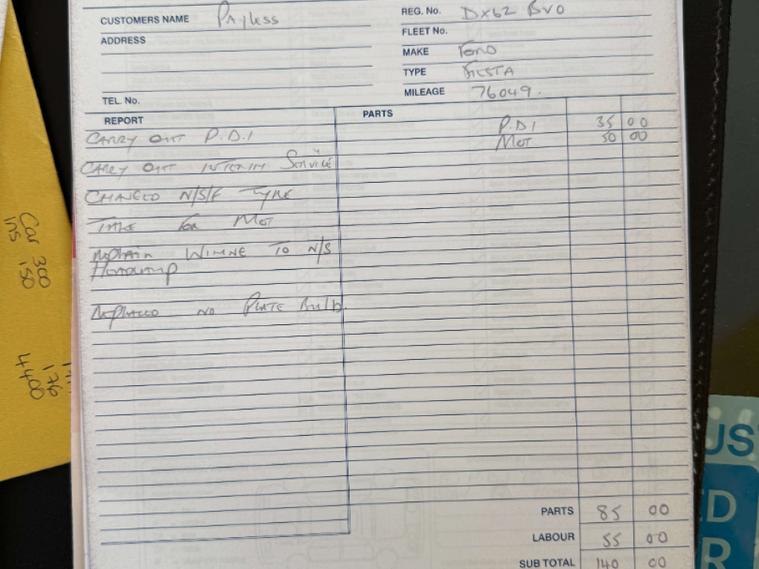 CUSTOMERS NAME Payless
REG. No. DX62 BVO
ADDRESS
FLEET No.
MAKE FORD
TYPE FIESTA
TEL. No.
MILEAGE 76049.
REPORT PARTS
CARRY OUT P.D.I P.D.I 35 00
MOT 50 00
CARRY OUT INTERIM SERVICE
CHANGED N/S/F TYRE
TAKE FOR MOT
TO N/S
REPLACED NO PLATE Bulb.
PARTS 85 00
LABOUR 55 00
SUB TOTAL 140 00
Car 300
ins 150
176
4400
UST
ED
R